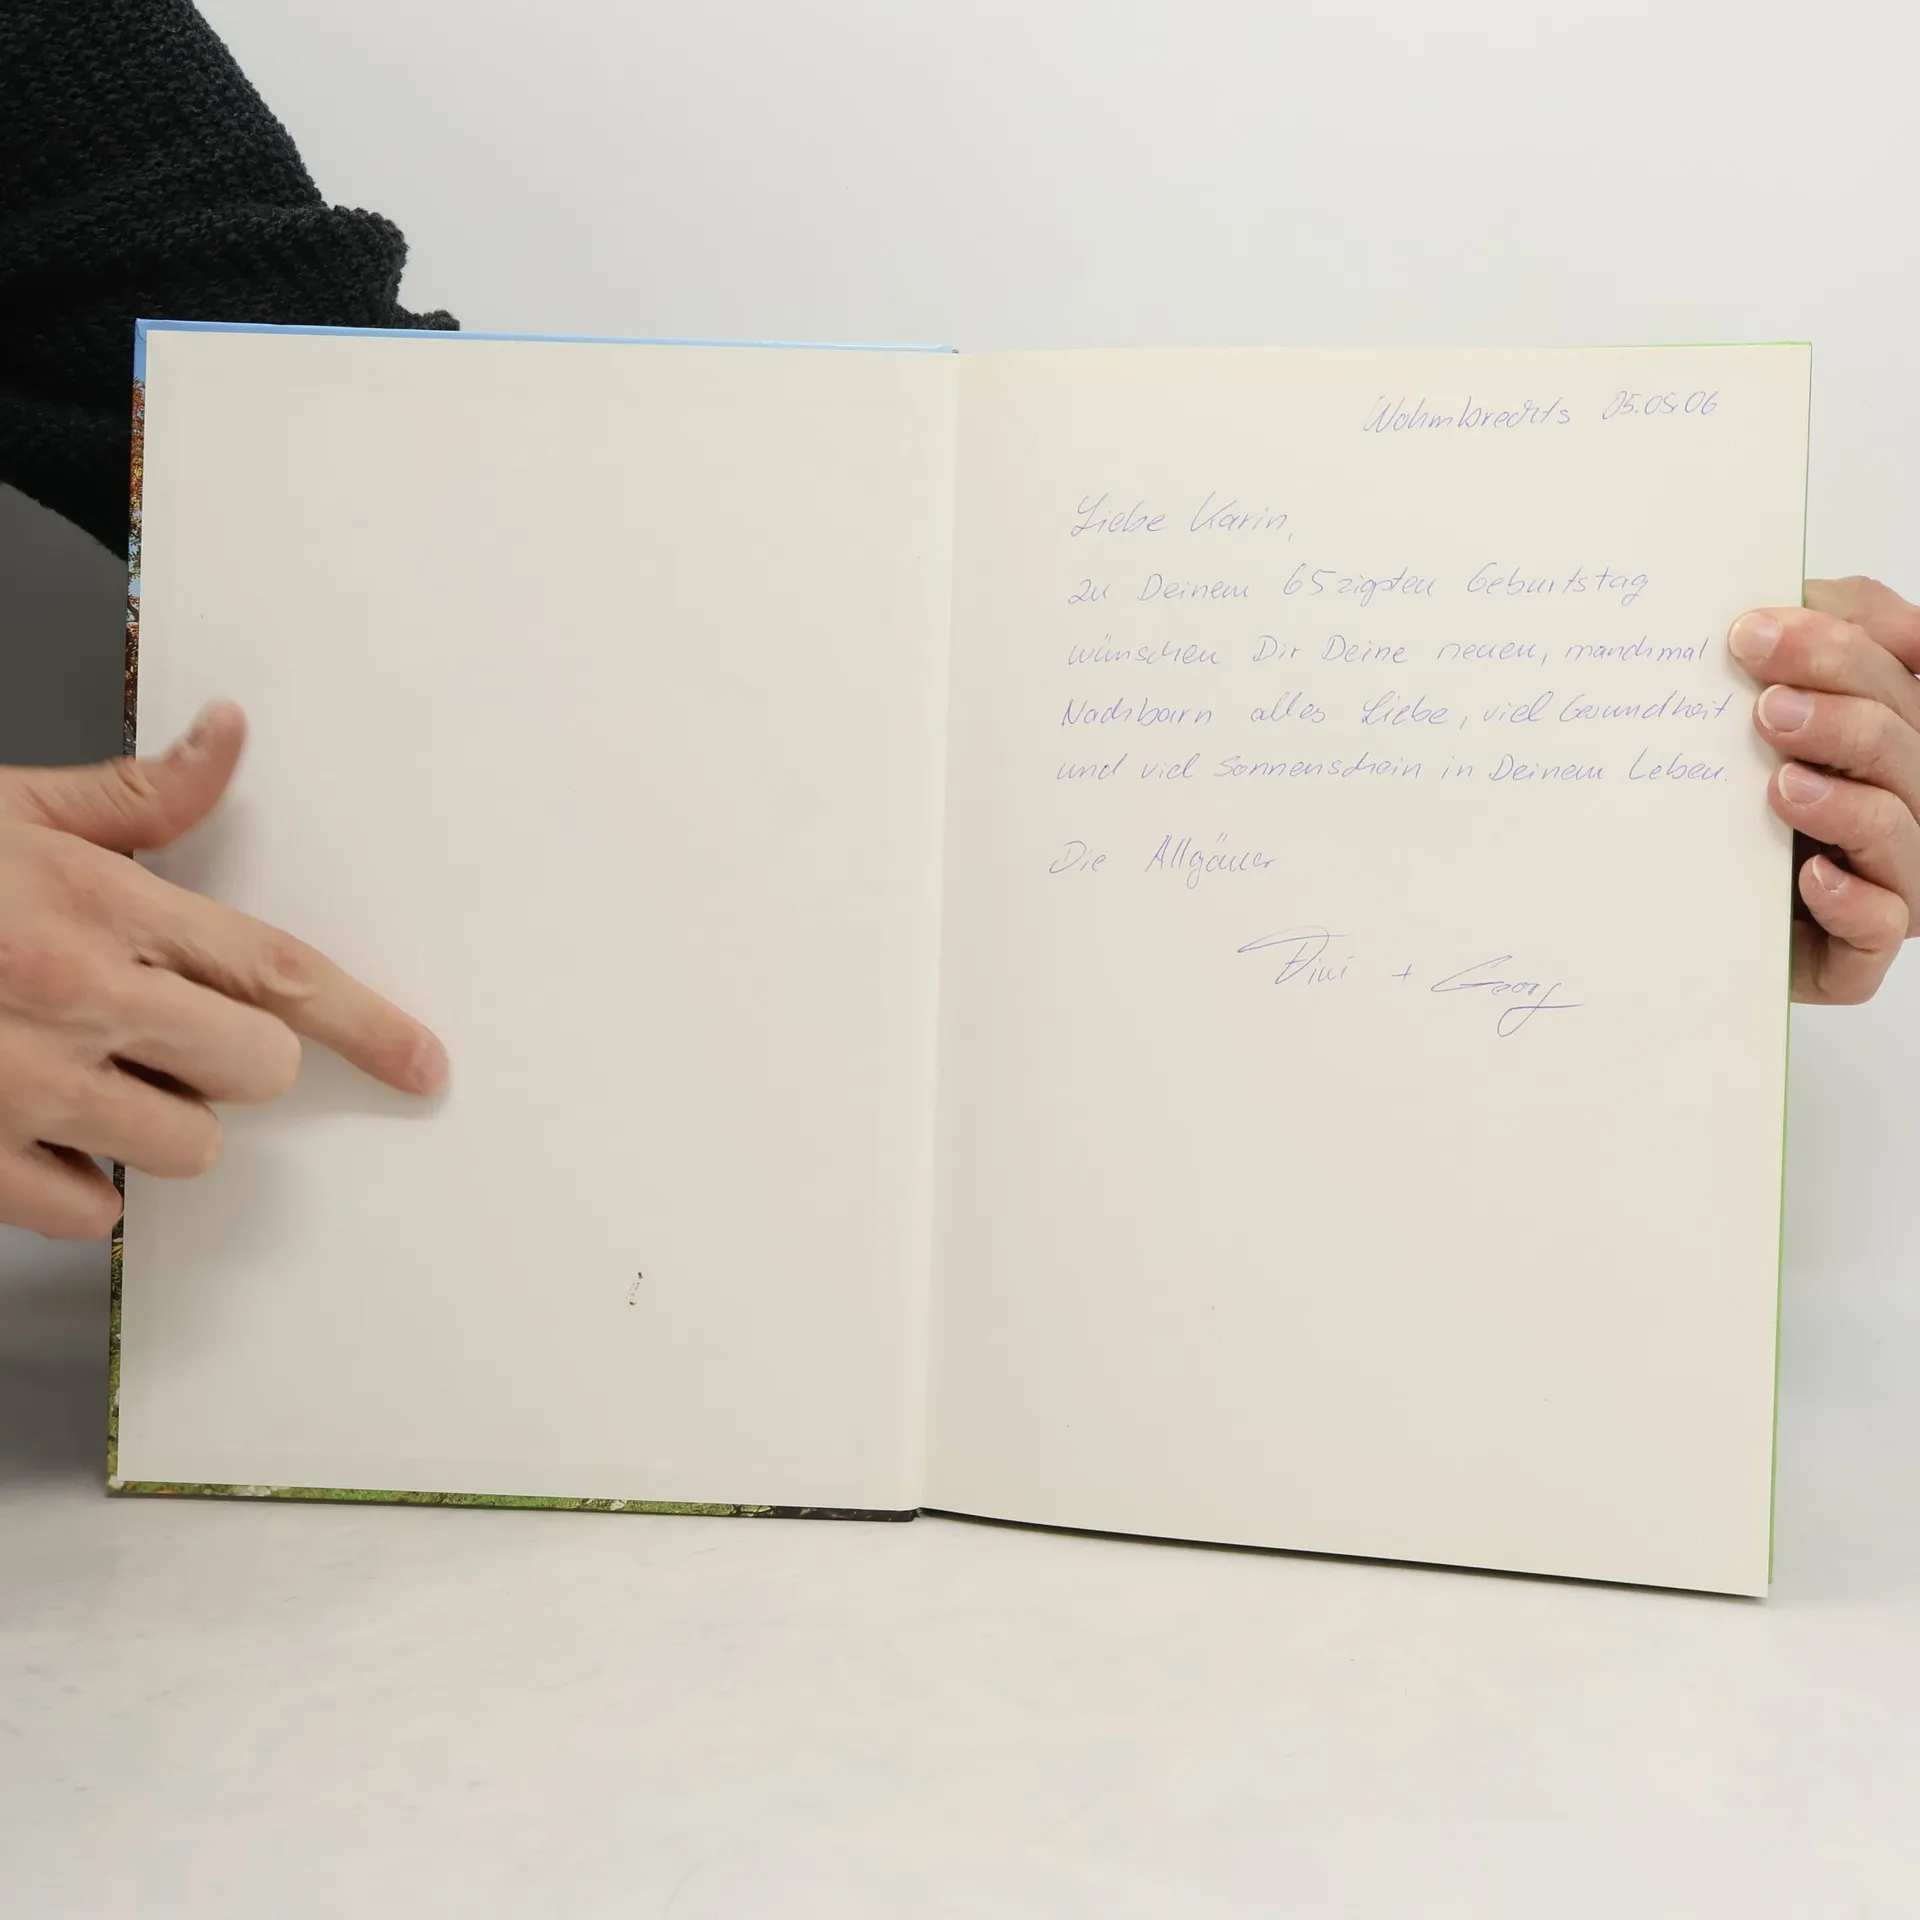 Wohmbrechts 05.05.06
Liebe Karin,
zu Deinem 65zigsten Geburtstag
wünschen Dir Deine neuen, manchmal
Nachbarn alles Liebe, viel Gesundheit
und viel Sonnenschein in Deinem Leben.
Die Allgäuer
+ Georg